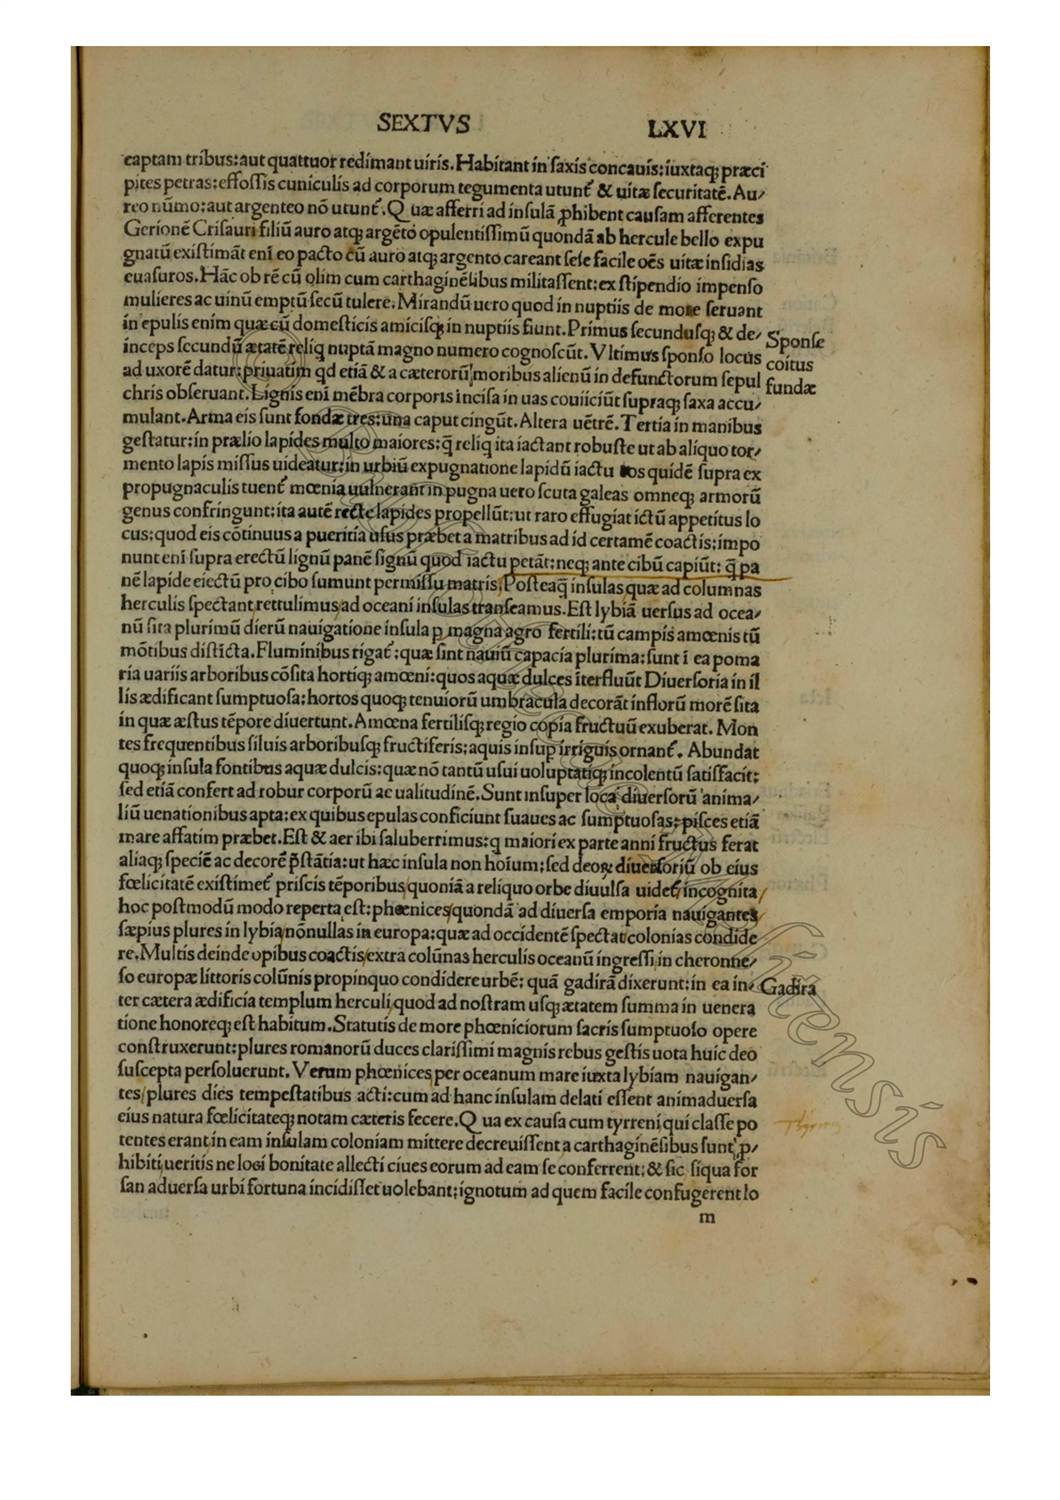 SEXTVS LXVI
captam tribus:aut quattuor redimant uiris.Habitant in ſaxis concauis:iuxtaqꝫ præci
pites petras:effoſſis cuniculis ad corporum tegumenta utunt᷑ & uitæ ſecuritatē.Au⸗
reo nūmo:aut argenteo nō utunt᷑.Quæ afferri ad inſulā ꝓhibent cauſam afferentes
Gerionē Criſauri filiū auro atqꝫ argēto opulentiſſimū quondā ab hercule bello expu
gnatū exiſtimāt eni eo pacto cū auro atqꝫ argento careant ſeſe facile oēs uitæ inſidias
euaſuros.Hāc ob rē cū olim cum carthaginēſibus militaſſent:ex ſtipendio impenſo
mulieres ac uinū emptū ſecū tulere.Mirandū uero quod in nuptiis de more ſeruant
in epulis enim quæ cū domeſticis amiciſqꝫ in nuptiis fiunt.Primus ſecunduſqꝫ & de⸗
inceps ſecundū ætatē reliq nuptā magno numero cognoſcūt.Vltimus ſponſo locus
ad uxorē datur:priuatim qd etiā & a cæterorū moribus alienū in defunctorum ſepul
chris obſeruant.Lignis eni mēbra corporis inciſa in uas couiiciūt ſupraqꝫ ſaxa accu⸗
mulant.Arma eis ſunt fondæ tres:una caput cingūt.Altera uētrē.Tertia in manibus
geſtatur:in prælio lapides multo maiores:q̄ reliq ita iactant robuſte ut ab aliquo tor⸗
mento lapis miſſus uideatur:in urbiū expugnatione lapidū iactu eos quidē ſupra ex
propugnaculis tuent᷑ mœnia uulnerant in pugna uero ſcuta galeas omneqꝫ armorū
genus confringunt:ita autē recte lapides propellūt:ut raro effugiat ictū appetitus lo
cus:quod eis cōtinuus a pueritia uſus præbet a matribus ad id certamē coactis:impo
nunt eni ſupra erectū lignū panē ſignū quod iactu petāt:neqꝫ ante cibū capiūt: q̄ pa
nē lapide eiectū pro cibo ſumunt permiſſu matris.Poſteaq̄ inſulas quæ ad columnas
herculis ſpectant rettulimus ad oceani inſulas tranſeamus.Eſt lybiā uerſus ad ocea⸗
nū ſita plurimū dierū nauigatione inſula p magna agro fertili:tū campis amœnis tū
mōtibus diſticta.Fluminibus rigat᷑:quæ ſint nauiū capacia plurima:ſunt ī ea poma
ria uariis arboribus cōſita hortiqꝫ amœni:quos aquæ dulces īterfluūt Diuerſoria in il
lis ædificant ſumptuoſa:hortos quoqꝫ tenuiorū umbracula decorāt inflorū morē ſita
in quæ æſtus tēpore diuertunt.Amœna fertiliſqꝫ regio copia fructuū exuberat. Mon
tes frequentibus ſiluis arboribuſqꝫ fructiferis:aquis inſup irriguis ornant᷑. Abundat
quoqꝫ inſula fontibus aquæ dulcis:quæ nō tantū uſui uoluptatiqꝫ incolentū ſatiſfacit:
ſed etiā confert ad robur corporū ac ualitudinē.Sunt inſuper loca diuerſorū anima⸗
liū uenationibus apta:ex quibus epulas conficiunt ſuaues ac ſumptuoſas:piſces etiā
mare affatim præbet.Eſt & aer ibi ſaluberrimus:q maiori ex parte anni fructus ferat
aliaqꝫ ſpeciē ac decorē p̄ſtātia:ut hæc inſula non hoīum:ſed deoꝝ diuerſoriū ob eius
fœlicitatē exiſtimet᷑ priſcis tēporibus quoniā a reliquo orbe diuulſa uidet᷑ incognita
hoc poſtmodū modo reperta eſt:phœnices quondā ad diuerſa emporia nauigantes
ſæpius plures in lybia nōnullas in europa:quæ ad occidentē ſpectat colonias condide
re.Multis deinde opibus coactis extra colūnas herculis oceanū ingreſſi in cheronne⸗
ſo europæ littoris colūnis propinquo condidere urbē: quā gadirā dixerunt:in ea in⸗
ter cætera ædificia templum herculi quod ad noſtram uſqꝫ ætatem ſumma in uenera
tione honoreqꝫ eſt habitum.Statutis de more phœniciorum ſacris ſumptuoſo opere
conſtruxerunt:plures romanorū duces clariſſimi magnis rebus geſtis uota huic deo
ſuſcepta perſoluerunt. Verum phœnices per oceanum mare iuxta lybiam nauigan⸗
tes plures dies tempeſtatibus acti:cum ad hanc inſulam delati eſſent animaduerſa
eius natura fœlicitateqꝫ notam cæteris fecere.Qua ex cauſa cum tyrreni qui claſſe po
tentes erant in eam inſulam coloniam mittere decreuiſſent a carthaginēſibus ſunt ꝓ⸗
hibiti ueritis ne loci bonitate allecti ciues eorum ad eam ſe conferrent:& ſic ſiqua for
ſan aduerſa urbi fortuna incidiſſet uolebant:ignotum ad quem facile confugerent lo
m
Sponſe
coitus
fundæ
Gadira